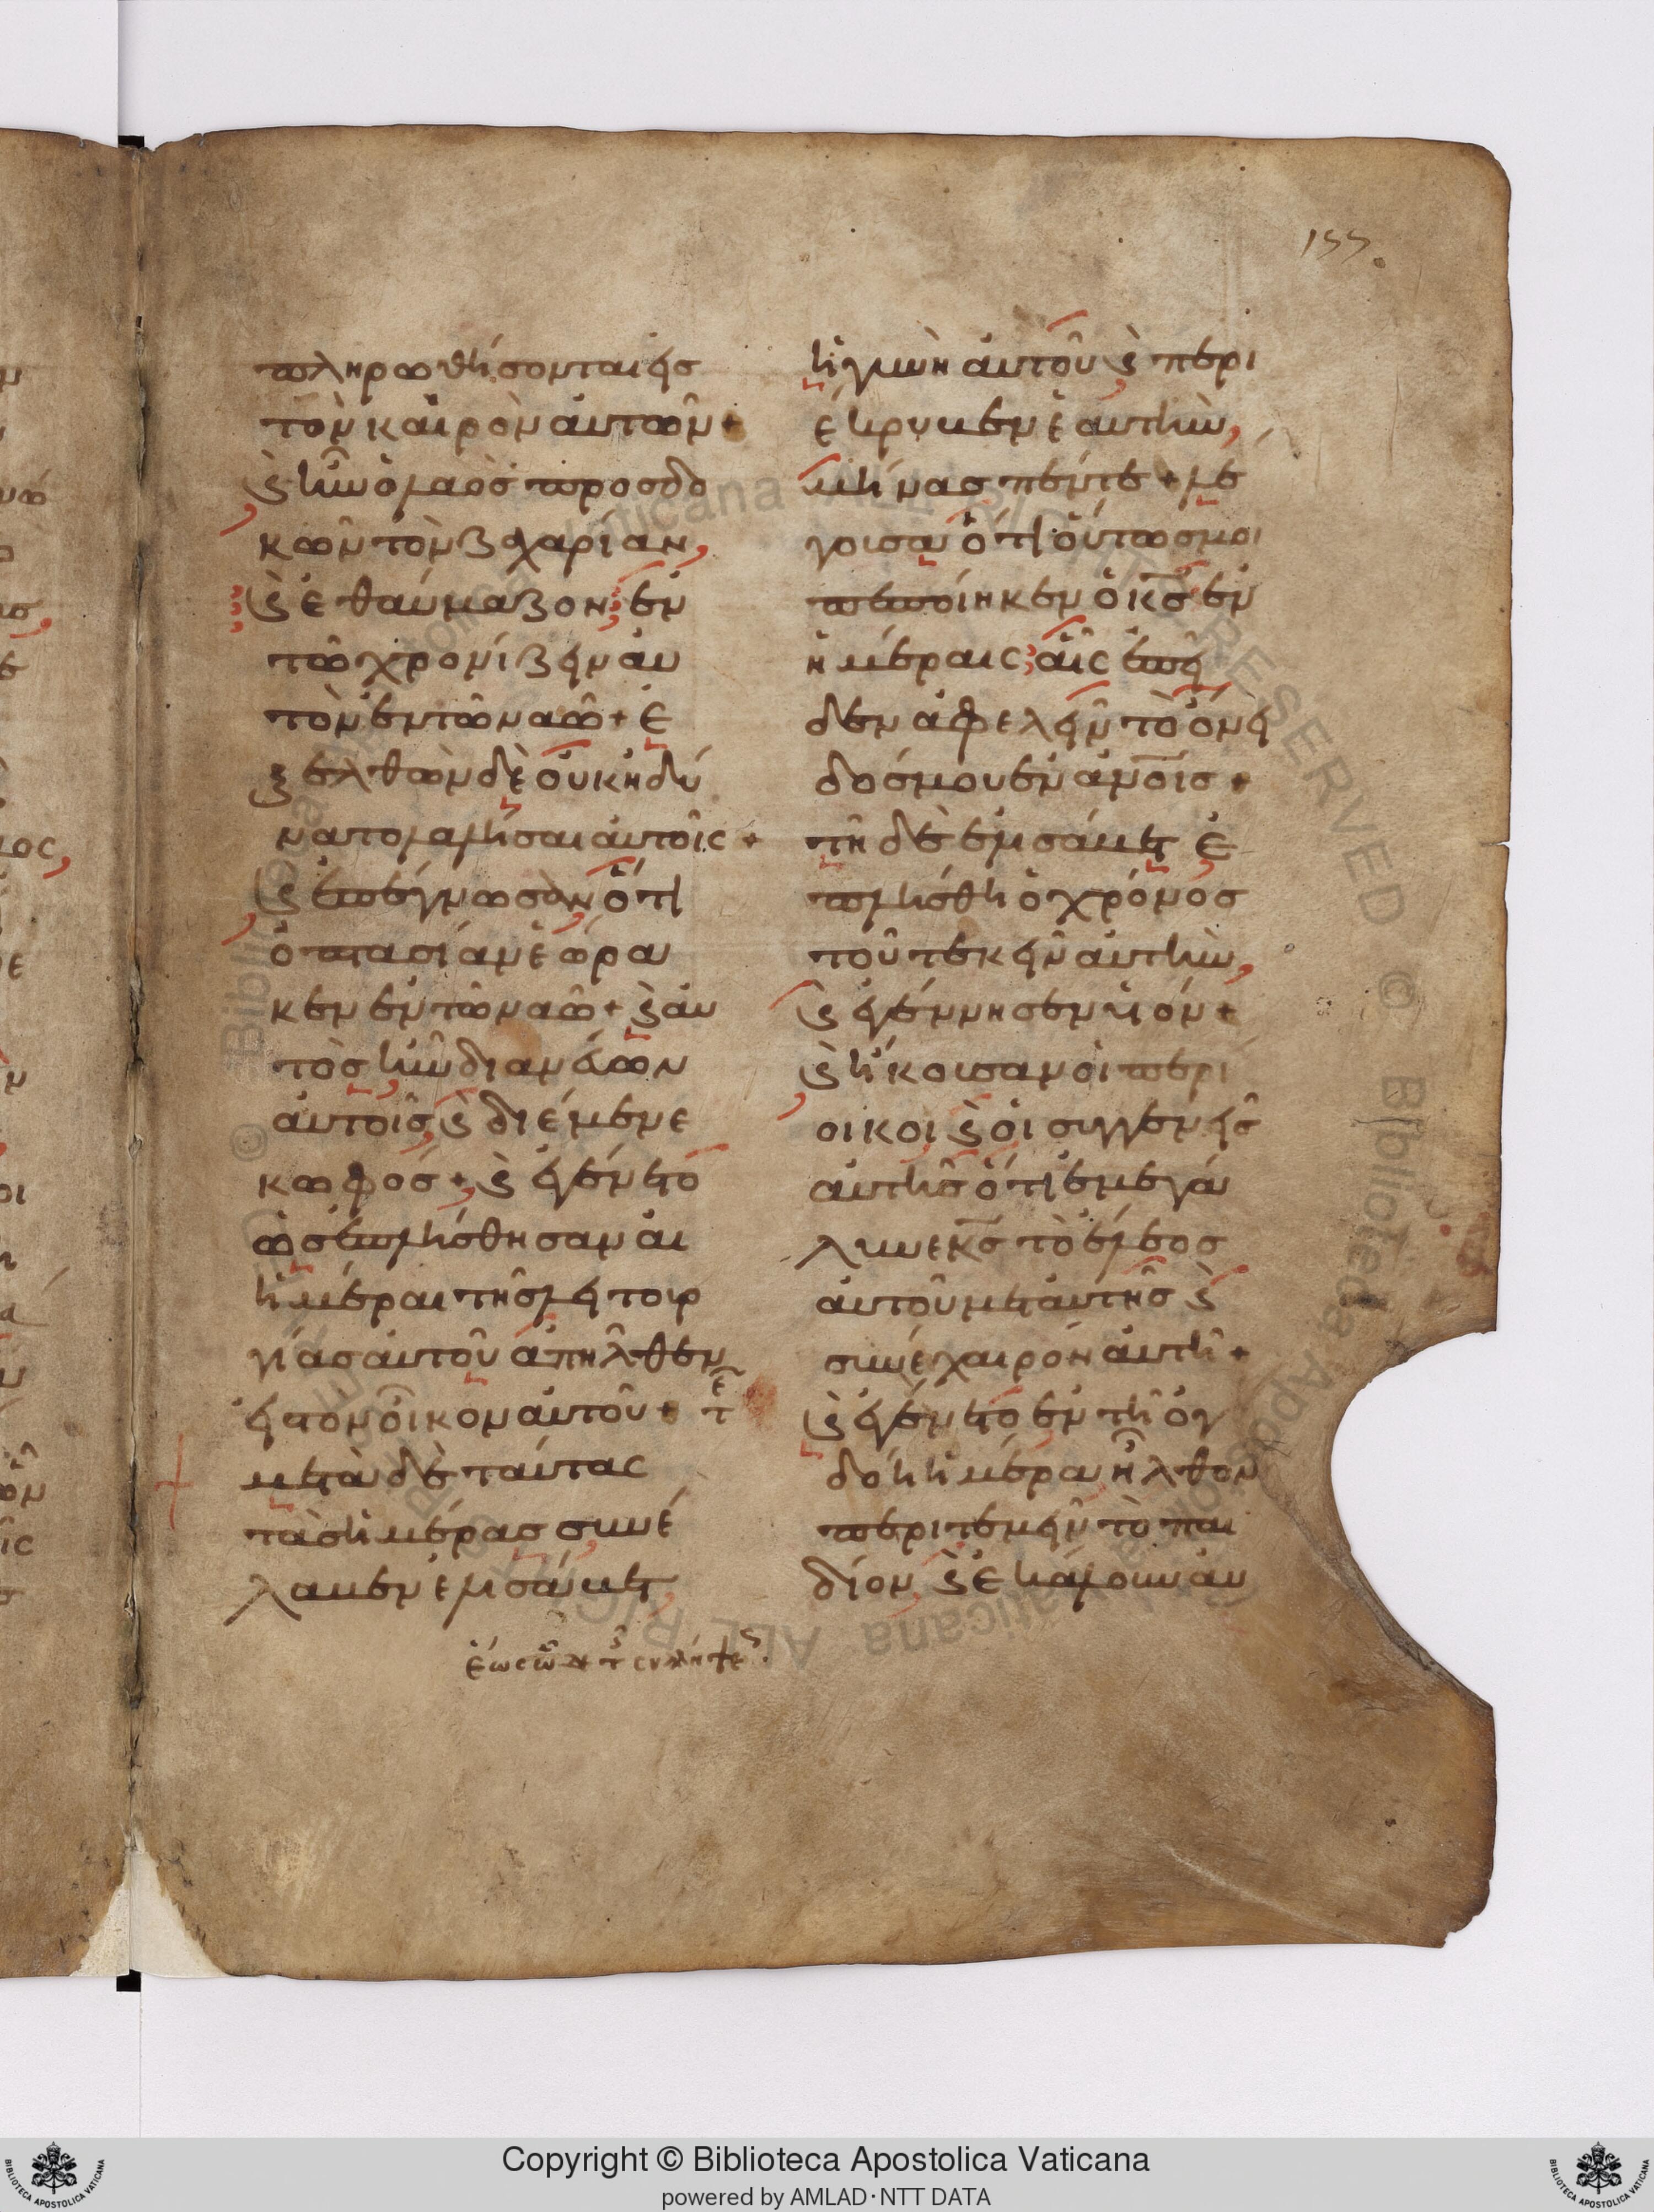 155.
πληρωθήσονται εἰς
τὸν καιρὸν αὐτῶν +
ϗ ἦν ὁ λαὸς προσδο
κῶν τὸν ζαχαρίαν,
ϗ ἐθαύμαζον ἐν
τῶ χρονίζειν αὐ
τὸν ἐν τῶ ναῶ + ἐ
ξελθὼν δὲ οὐκ ἠδύ
νατο λαλῆσαι αὐτοῖς +
ϗ ἐπέγνωσαν ὅτι
ὀπτασίαν ἑώρα
κεν ἐν τῶ ναῶ + ϗ αὐ
τὸς ἦν διανεύων
αὐτοῖς, ϗ διέμενε
κωφός + ϗ ἐγένετο
ὡς ἐπλήσθησαν αἱ
ἡμέραι τῆς λειτουρ
γίας αὐτοῦ ἀπῆλθεν
εἰς τὸν οἶκον αὐτοῦ +
μετὰ δὲ ταύτας
τὰς ἡμέρας συνέ
λαβεν ἐλισάβετ
ἡ γυνὴ αὐτοῦ ϗ περι
έκρυβεν ἑαυτὴν,
μῆνας πέντε + λέ
γουσα ὅτι οὕτως μοι
πεποίηκεν ὁ κς ἐν
ἡμέραις αἷς ἐπεῖ
δεν ἀφελεῖν τὸ ὄνει
δός μου ἐν ἀνοις +
τῆ δὲ ἐλισάβετ ἐ
πλήσθη ὁ χρόνος
τοῦ τεκεῖν αὐτὴν,
ϗ ἐγέννησεν υἱόν +
ϗ ἤκουσαν οἱ περί
οικοι ϗ οἱ συγγενεῖς
αὐτῆς ὅτι ἐμεγά
λυνε κς τὸ ἔλεος
αὐτοῦ μετ αὐτῆς ϗ
συνέχαιρον αὐτῆ +
ϗ ἐγένετο ἐν τῆ ὀγ
δόη ἡμέρα ἦλθον
περιτεμεῖν τὸ παι
δίον ϗ ἐκάλουν αὐ
Copyright © Biblioteca Apostolica Vaticana
powered by AMLAD·NTT DATA